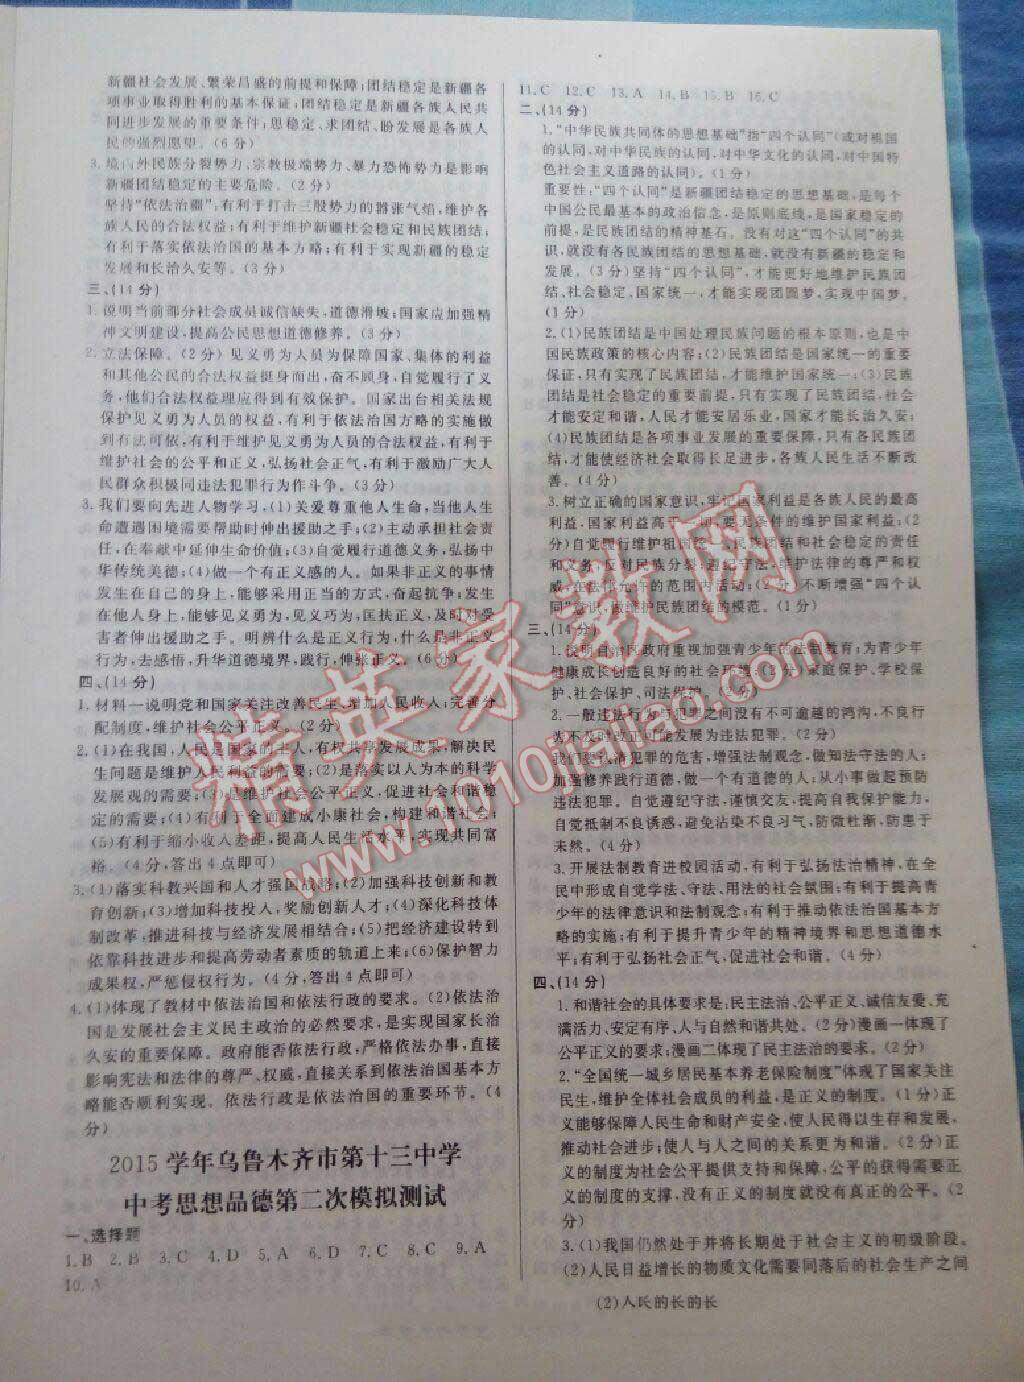 新疆社会发展、繁荣昌盛的前提和保障;团结稳定是新疆各
项事业取得胜利的基本保证;团结稳定是新疆各族人民共
同进步发展的重要条件;思稳定、求团结、盼发展是各族人
民的强烈愿望。(6分)
3. 境内外民族分裂势力、宗教极端势力、暴力恐怖势力是影响
新疆团结稳定的主要危险。(2分)
坚持“依法治疆”,有利于打击三股势力的嚣张气焰,维护各
族人民的合法权益;有利于维护新疆社会稳定和民族团结;
有利于落实依法治国的基本方略;有利于实现新疆的稳定
发展和长治久安等。(3分)
三、(14分)
1. 说明当前部分社会成员诚信缺失,道德滑坡;国家应加强精
神文明建设,提高公民思想道德修养。(2分)
2. 立法保障。(2分) 见义勇为人员为保障国家、集体的利益
和其他公民的合法权益挺身而出,奋不顾身,自觉履行了义
务,他们合法权益理应得到有效保护。国家出台相关法规
保护见义勇为人员的权益,有利于依法治国方略的实施做
到有法可依;有利于维护见义勇为人员的合法权益,有利于
维护社会的公平和正义,弘扬社会正气,有利于激励广大人
民群众积极同违法犯罪行为作斗争。(3分)
3. 我们要向先进人物学习,(1)关爱尊重他人生命,当他人生
命遭遇困境需要帮助时伸出援助之手;(2)主动承担社会责
任,在奉献中延伸生命价值;(3)自觉履行道德义务,弘扬中
华传统美德;(4)做一个有正义感的人。如果非正义的事情
发生在自己的身上,能够采用正当的方式,奋起抗争;发生
在他人身上,能够见义勇为,见义巧为,匡扶正义,及时对受
害者伸出援助之手。明辨什么是正义行为,什么是非正义
行为,去感悟,升华道德境界,践行,伸张正义。(6分)
四、(14分)
1. 材料一说明党和国家关注改善民生、增加人民收入;完善分
配制度,维护社会公平正义。(2分)
2. (1)在我国,人民是国家的主人,有权共享发展成果,解决民
生问题是维护人民利益的需要;(2)是落实以人为本的科学
发展观的需要;(3)是维护社会公平正义,促进社会和谐稳
定的需要;(4)有利于全面建成小康社会,构建和谐社会;
(5)有利于缩小收入差距,提高人民生活水平,实现共同富
裕。(4分,答出4点即可)
3. (1)落实科教兴国和人才强国战略;(2)加强科技创新和教
育创新;(3)增加科技投入,奖励创新人才;(4)深化科技体
制改革,推进科技与经济发展相结合;(5)把经济建设转到
依靠科技进步和提高劳动者素质的轨道上来;(6)保护智力
成果权,严惩侵权行为。(4分,答出4点即可)
4. (1)体现了教材中依法治国和依法行政的要求。(2)依法治
国是发展社会主义民主政治的必然要求,是实现国家长治
久安的重要保障。政府能否依法行政,严格依法办事,直接
影响宪法和法律的尊严、权威,直接关系到依法治国基本方
略能否顺利实现。依法行政是依法治国的重要环节。(4
分)
2015学年乌鲁木齐市第十三中学
中考思想品德第二次模拟测试
一、选择题
1. B 2. B 3. C 4. D 5. A 6. D 7. C 8. C 9. A
10. A
11. C 12. C 13. A 14. B 15. B 16. C
二、(14分)
1. “中华民族共同体的思想基础”指“四个认同”(或对祖国
的认同,对中华民族的认同,对中华文化的认同,对中国特
色社会主义道路的认同)。(1分)
重要性:“四个认同”是新疆团结稳定的思想基础,是每个
中国公民最基本的政治信念,是原则底线,是国家稳定的
前提,是民族团结的精神基石。没有对这“四个认同”的共
识,就没有各民族团结的思想基础,就没有新疆的稳定和
发展。(3分)坚持“四个认同”,才能更好地维护民族团
结,社会稳定,国家统一,才能实现团圆梦,实现中国梦。
(1分)
2. (1)民族团结是中国处理民族问题的根本原则,也是中
国民族政策的核心内容;(2)民族团结是国家统一的重要
保证,只有实现了民族团结,才能维护国家统一;(3)民族
团结是社会稳定的重要前提,只有实现了民族团结,社会
才能安定和谐,人民才能安居乐业,国家才能长治久安;
(4)民族团结是各项事业发展的重要保障,只有各民族团
结,才能使经济社会取得长足进步,各族人民生活不断改
善。(4分)
3. 树立正确的国家意识,牢记国家利益是各族人民的最高
利益,国家利益高于一切,要无条件的维护国家利益;(2
分)自觉履行维护祖国统一、各民族团结和社会稳定的责任
和义务,反对民族分裂;遵纪守法,维护法律的尊严和权
威,在法律允许的范围内活动;(2分)不断增强“四个认
同”意识,做维护民族团结的模范。(1分)
三、(14分)
1. 说明自治区政府重视加强青少年的法制教育;为青少年
健康成长创造良好的社会环境;(2分)家庭保护、学校保
护、社会保护、司法保护。(2分)
2. 一般违法行为与犯罪之间没有不可逾越的鸿沟,不良行
为不及时改正可能发展为违法犯罪。(2分)
我们要认清犯罪的危害,增强法制观念,做知法守法的人;
加强修养践行道德,做一个有道德的人;从小事做起预防
违法犯罪。自觉遵纪守法,谨慎交友,提高自我保护能力,
自觉抵制不良诱惑,避免沾染不良习气,防微杜渐,防患于
未然。(4分)
3. 开展法制教育进校园活动,有利于弘扬法治精神,在全
民中形成自觉学法、守法、用法的社会氛围;有利于提高青
少年的法律意识和法制观念;有利于推动依法治国基本方
略的实施;有利于提升青少年的精神境界和思想道德水
平;有利于弘扬社会正气,促进社会和谐。(4分)
四、(14分)
1. 和谐社会的具体要求是:民主法治、公平正义、诚信友爱、充
满活力、安定有序、人与自然和谐共处。(2分)漫画一体现了
公平正义的要求;漫画二体现了民主法治的要求。(2分)
2. “全国统一城乡居民基本养老保险制度”体现了国家关注
民生,维护全体社会成员的利益,是正义的制度。(1分)正
义能够保障人民生命和财产安全,使人民得以生存和发展,
推动社会进步;使人与人之间的关系更为和谐。(2分)正义
的制度为社会公平提供支持和保障,公平的获得需要正义
的制度的支撑,没有正义的制度就没有真正的公平。(2
分)
3. (1)我国仍然处于并将长期处于社会主义的初级阶段。
(2)人民日益增长的物质文化需要同落后的社会生产之间
(2)人民的长的长
精英家教网
www.1010jiajiao.com